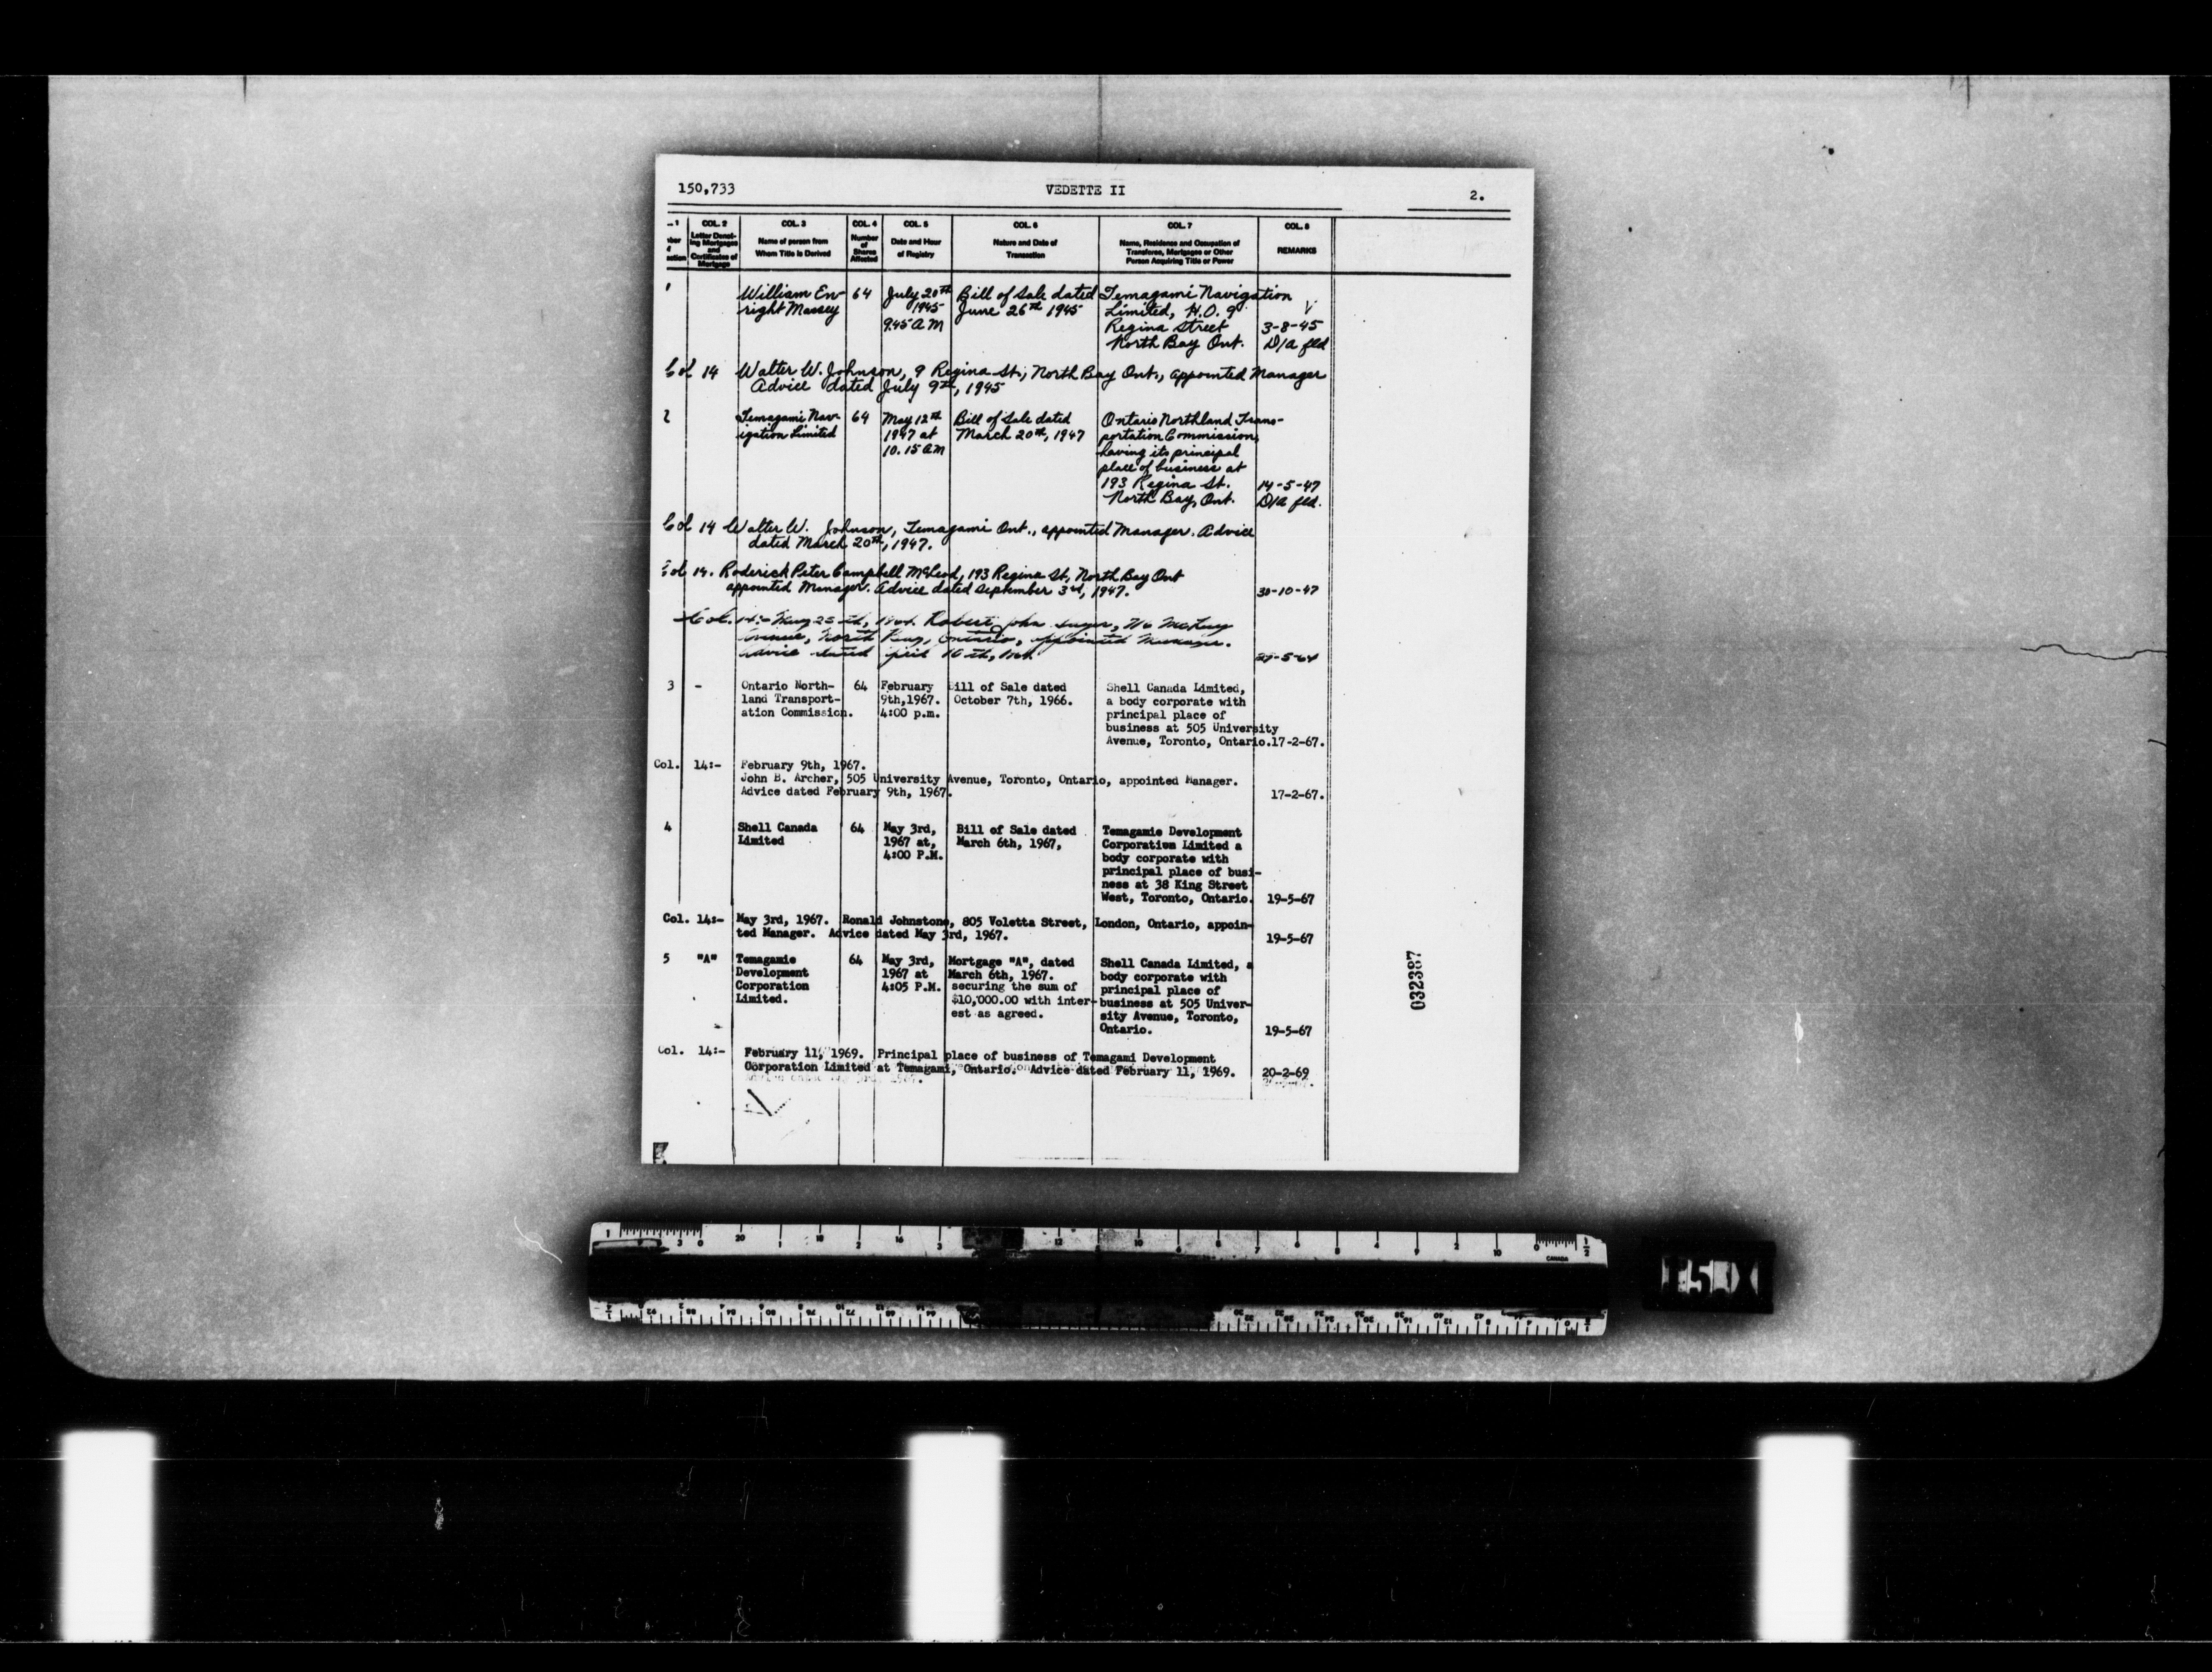 150,733 VEDETTE II 2.
COL. 2 COL. 3 COL. 4 COL. 5 COL. 6 COL. 7 COL. 8
Letter Denoting Mortgages and Certificates of Mortgage
Name of person from Whom Title is Derived
Number of Shares Affected
Date and Hour of Registry
Nature and Date of Transaction
Name, Residence and Occupation of Transferee, Mortgagee or Other Person Acquiring Title or Power
REMARKS
1
William En-
right Massey
64
July 20th
1945
9.45 A M
Bill of Sale dated
June 26th 1945
Temagami Navigation
Limited, H.O. 9
Regina Street
North Bay Ont.
3-8-45
D/A fld
Col 14 Walter W. Johnson, 9 Regina St., North Bay Ont., appointed Manager
Advice dated July 9th, 1945
2
Temagami Nav-
igation Limited
64
May 12th
1947 at
10.15 A M
Bill of Sale dated
March 20th, 1947
Ontario Northland Trans-
portation Commission,
having its principal
place of business at
193 Regina St.
North Bay, Ont.
14-5-47
D/A fld.
Col 14 Walter W. Johnson, Temagami Ont., appointed Manager. Advice
dated March 20th, 1947.
Col 14. Roderick Peter Campbell McLeod, 193 Regina St, North Bay Ont
appointed Manager. Advice dated September 3rd, 1947.
30-10-47
Col. 14:- May 25th, 1964. Robert John
North Bay, Ontario, appointed Manager.
Advice dated 10th,
3 -
Ontario North-
land Transport-
ation Commission.
64
February
9th,1967.
4:00 p.m.
Bill of Sale dated
October 7th, 1966.
Shell Canada Limited,
a body corporate with
principal place of
business at 505 University
Avenue, Toronto, Ontario.
17-2-67.
Col. 14:- February 9th, 1967.
John B. Archer, 505 University Avenue, Toronto, Ontario, appointed Manager.
Advice dated February 9th, 1967.
17-2-67.
4
Shell Canada
Limited
64
May 3rd,
1967 at,
4:00 P.M.
Bill of Sale dated
March 6th, 1967,
Temagamie Development
Corporation Limited a
body corporate with
principal place of busi-
ness at 38 King Street
West, Toronto, Ontario.
19-5-67
Col. 14:- May 3rd, 1967. Ronald Johnstone, 805 Voletta Street, London, Ontario, appoin-
ted Manager. Advice dated May 3rd, 1967.
19-5-67
5 "A"
Temagamie
Development
Corporation
Limited.
64
May 3rd,
1967 at
4:05 P.M.
Mortgage "A", dated
March 6th, 1967.
securing the sum of
$10,000.00 with inter-
est as agreed.
Shell Canada Limited, a
body corporate with
principal place of
business at 505 Univer-
sity Avenue, Toronto,
Ontario.
19-5-67
Col. 14:- February 11, 1969. Principal place of business of Temagami Development
Corporation Limited at Temagami, Ontario. Advice dated February 11, 1969.
20-2-69
032387
CANADA